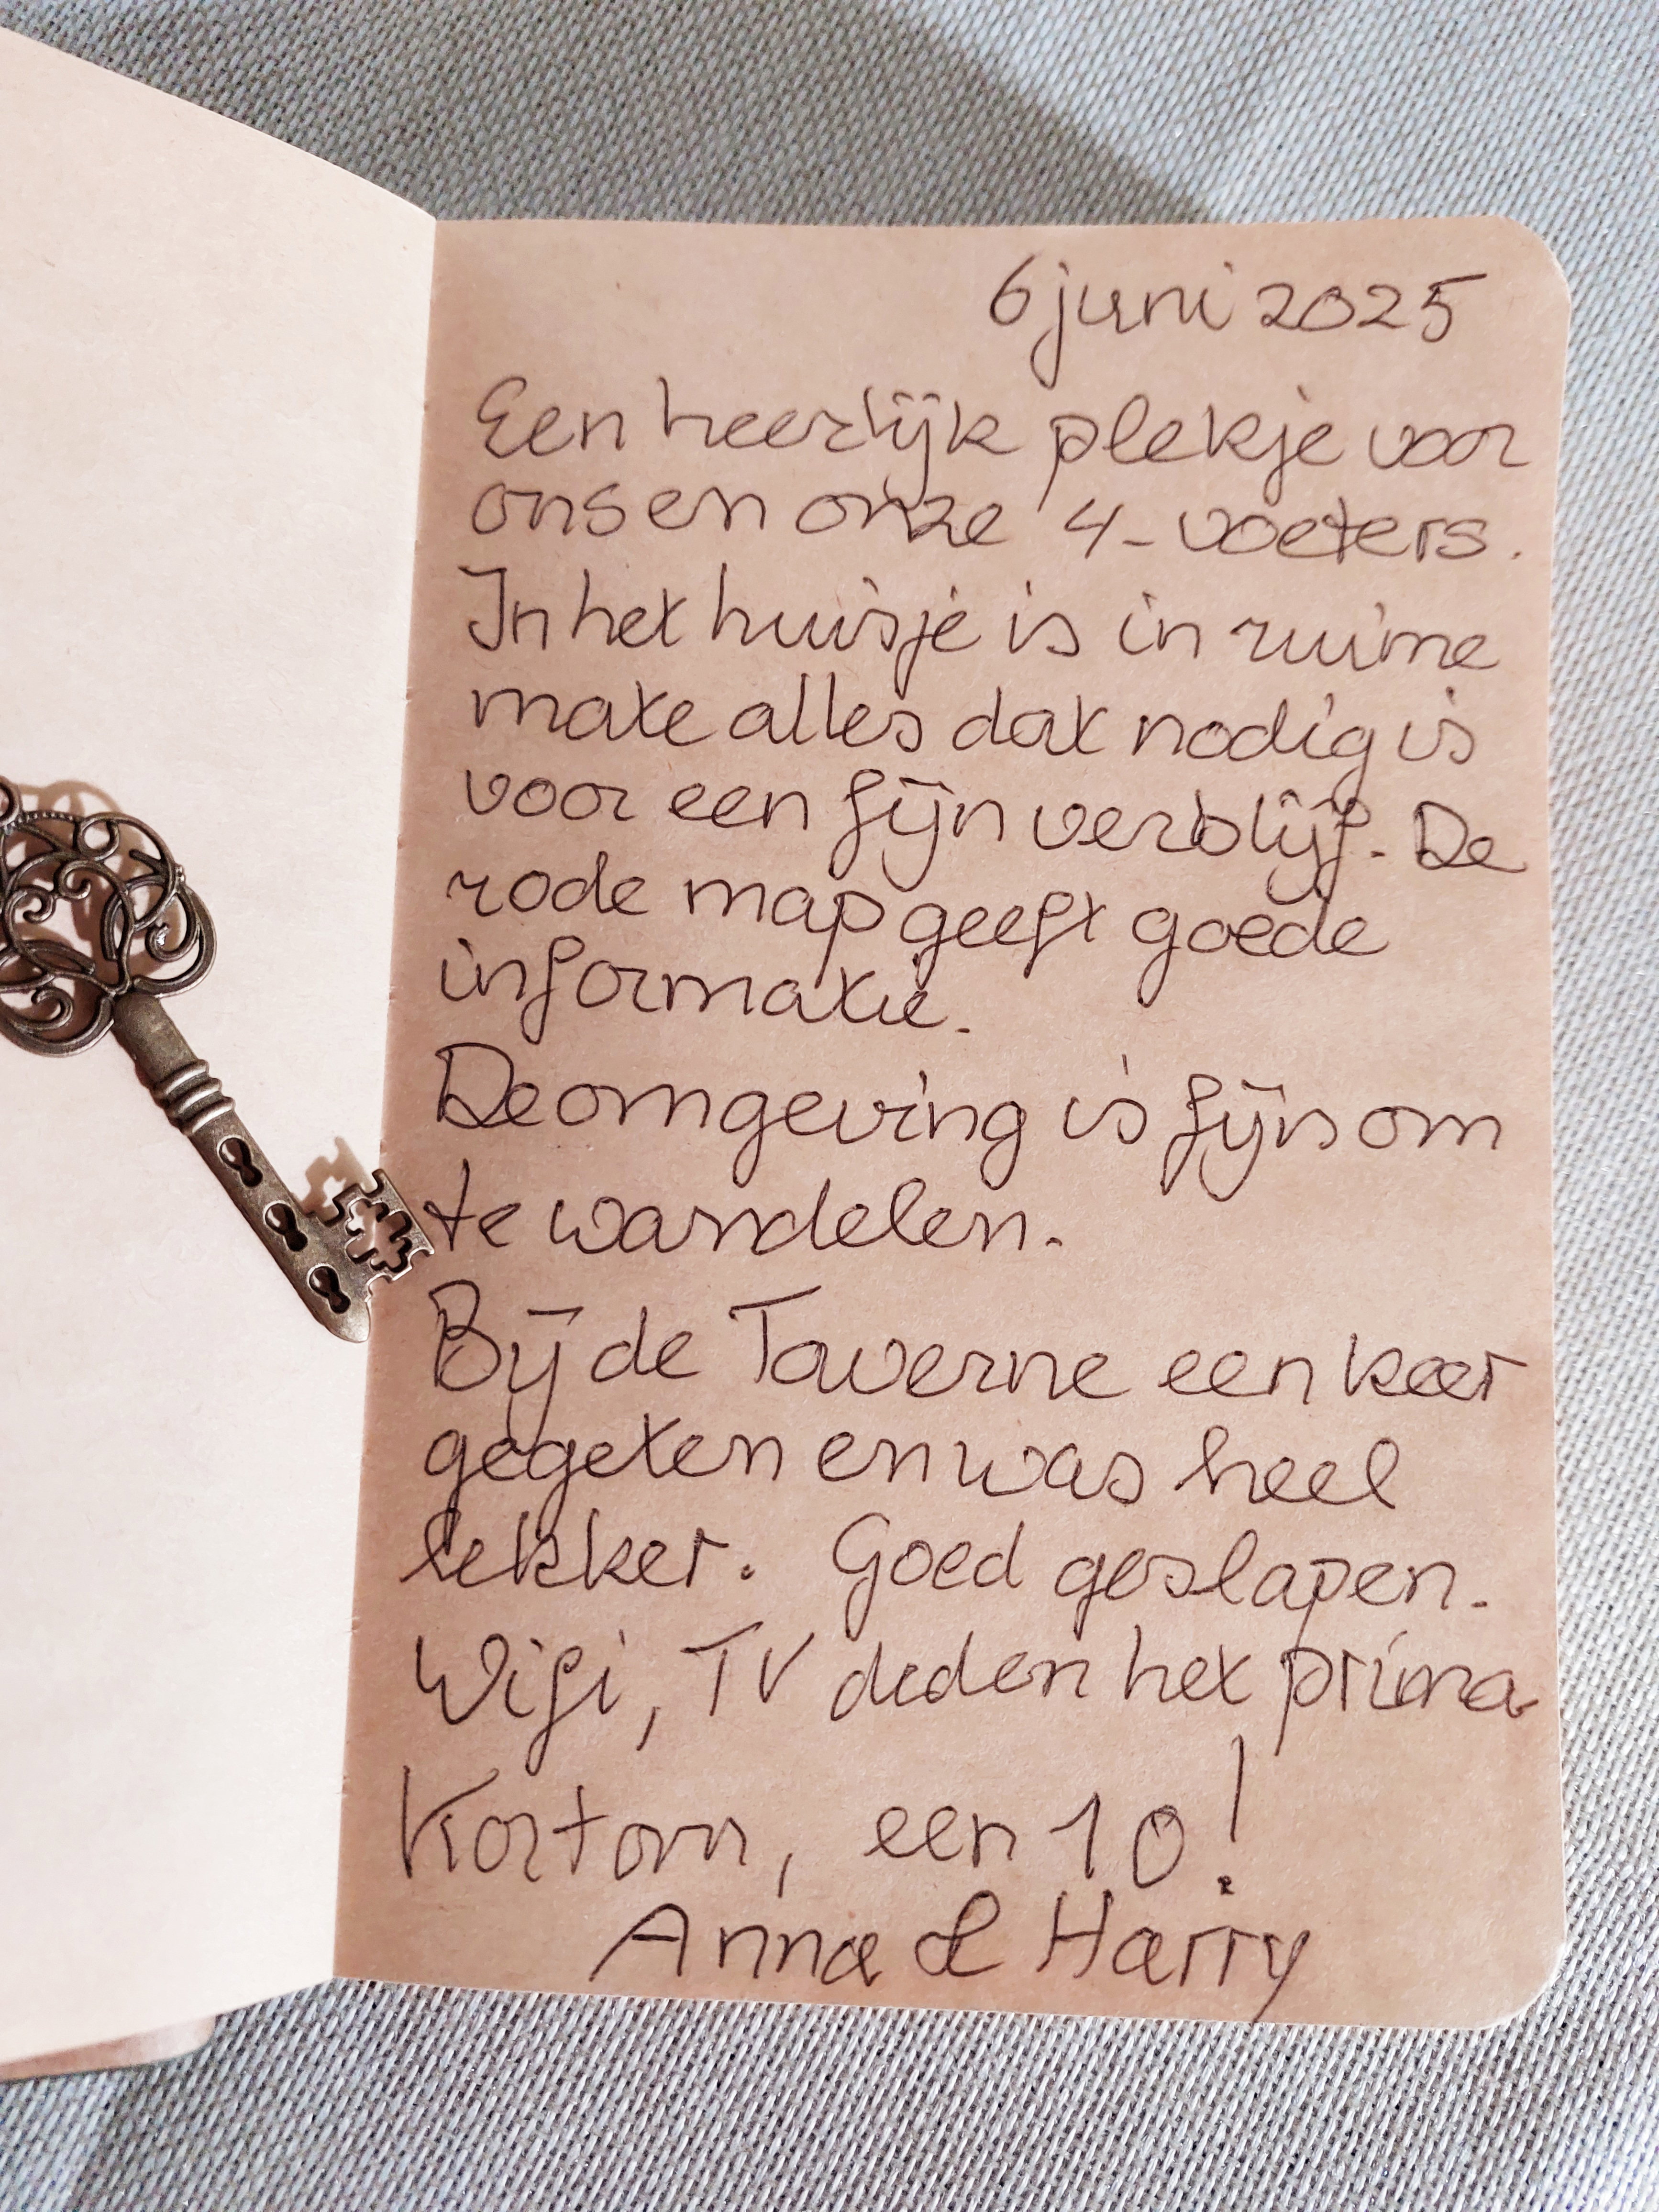 6 juni 2025
Een heerlijk plekje voor
ons en onze 4-voeters.
In het huisje is in ruime
mate alles dat nodig is
voor een fijn verblijf. De
rode map geeft goede
informatie.
De omgeving is fijn om
te wandelen.
Bij de Taverne een keer
gegeten en was heel
lekker. Goed geslapen.
Wifi, TV deden het prima
Kortom, een 10!
Anna & Harry